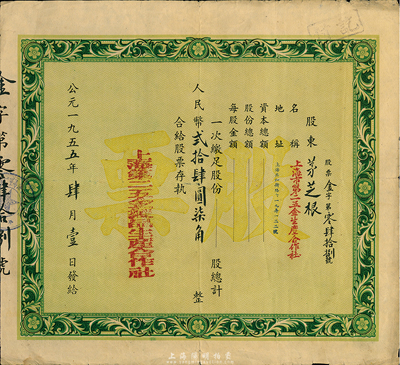 股票金字第零肆拾捌號
股東 芽芝根
名稱 上海市第二五金生產合作社
地址
資本總額
股份總額
每股金額
一次繳足股份 股總計
人民幣弍拾肆圓柒角 整
合給股票存執
上海市第二五金生產合作社
公元一九五五年肆月壹日發給
金字第零肆拾捌號
股票